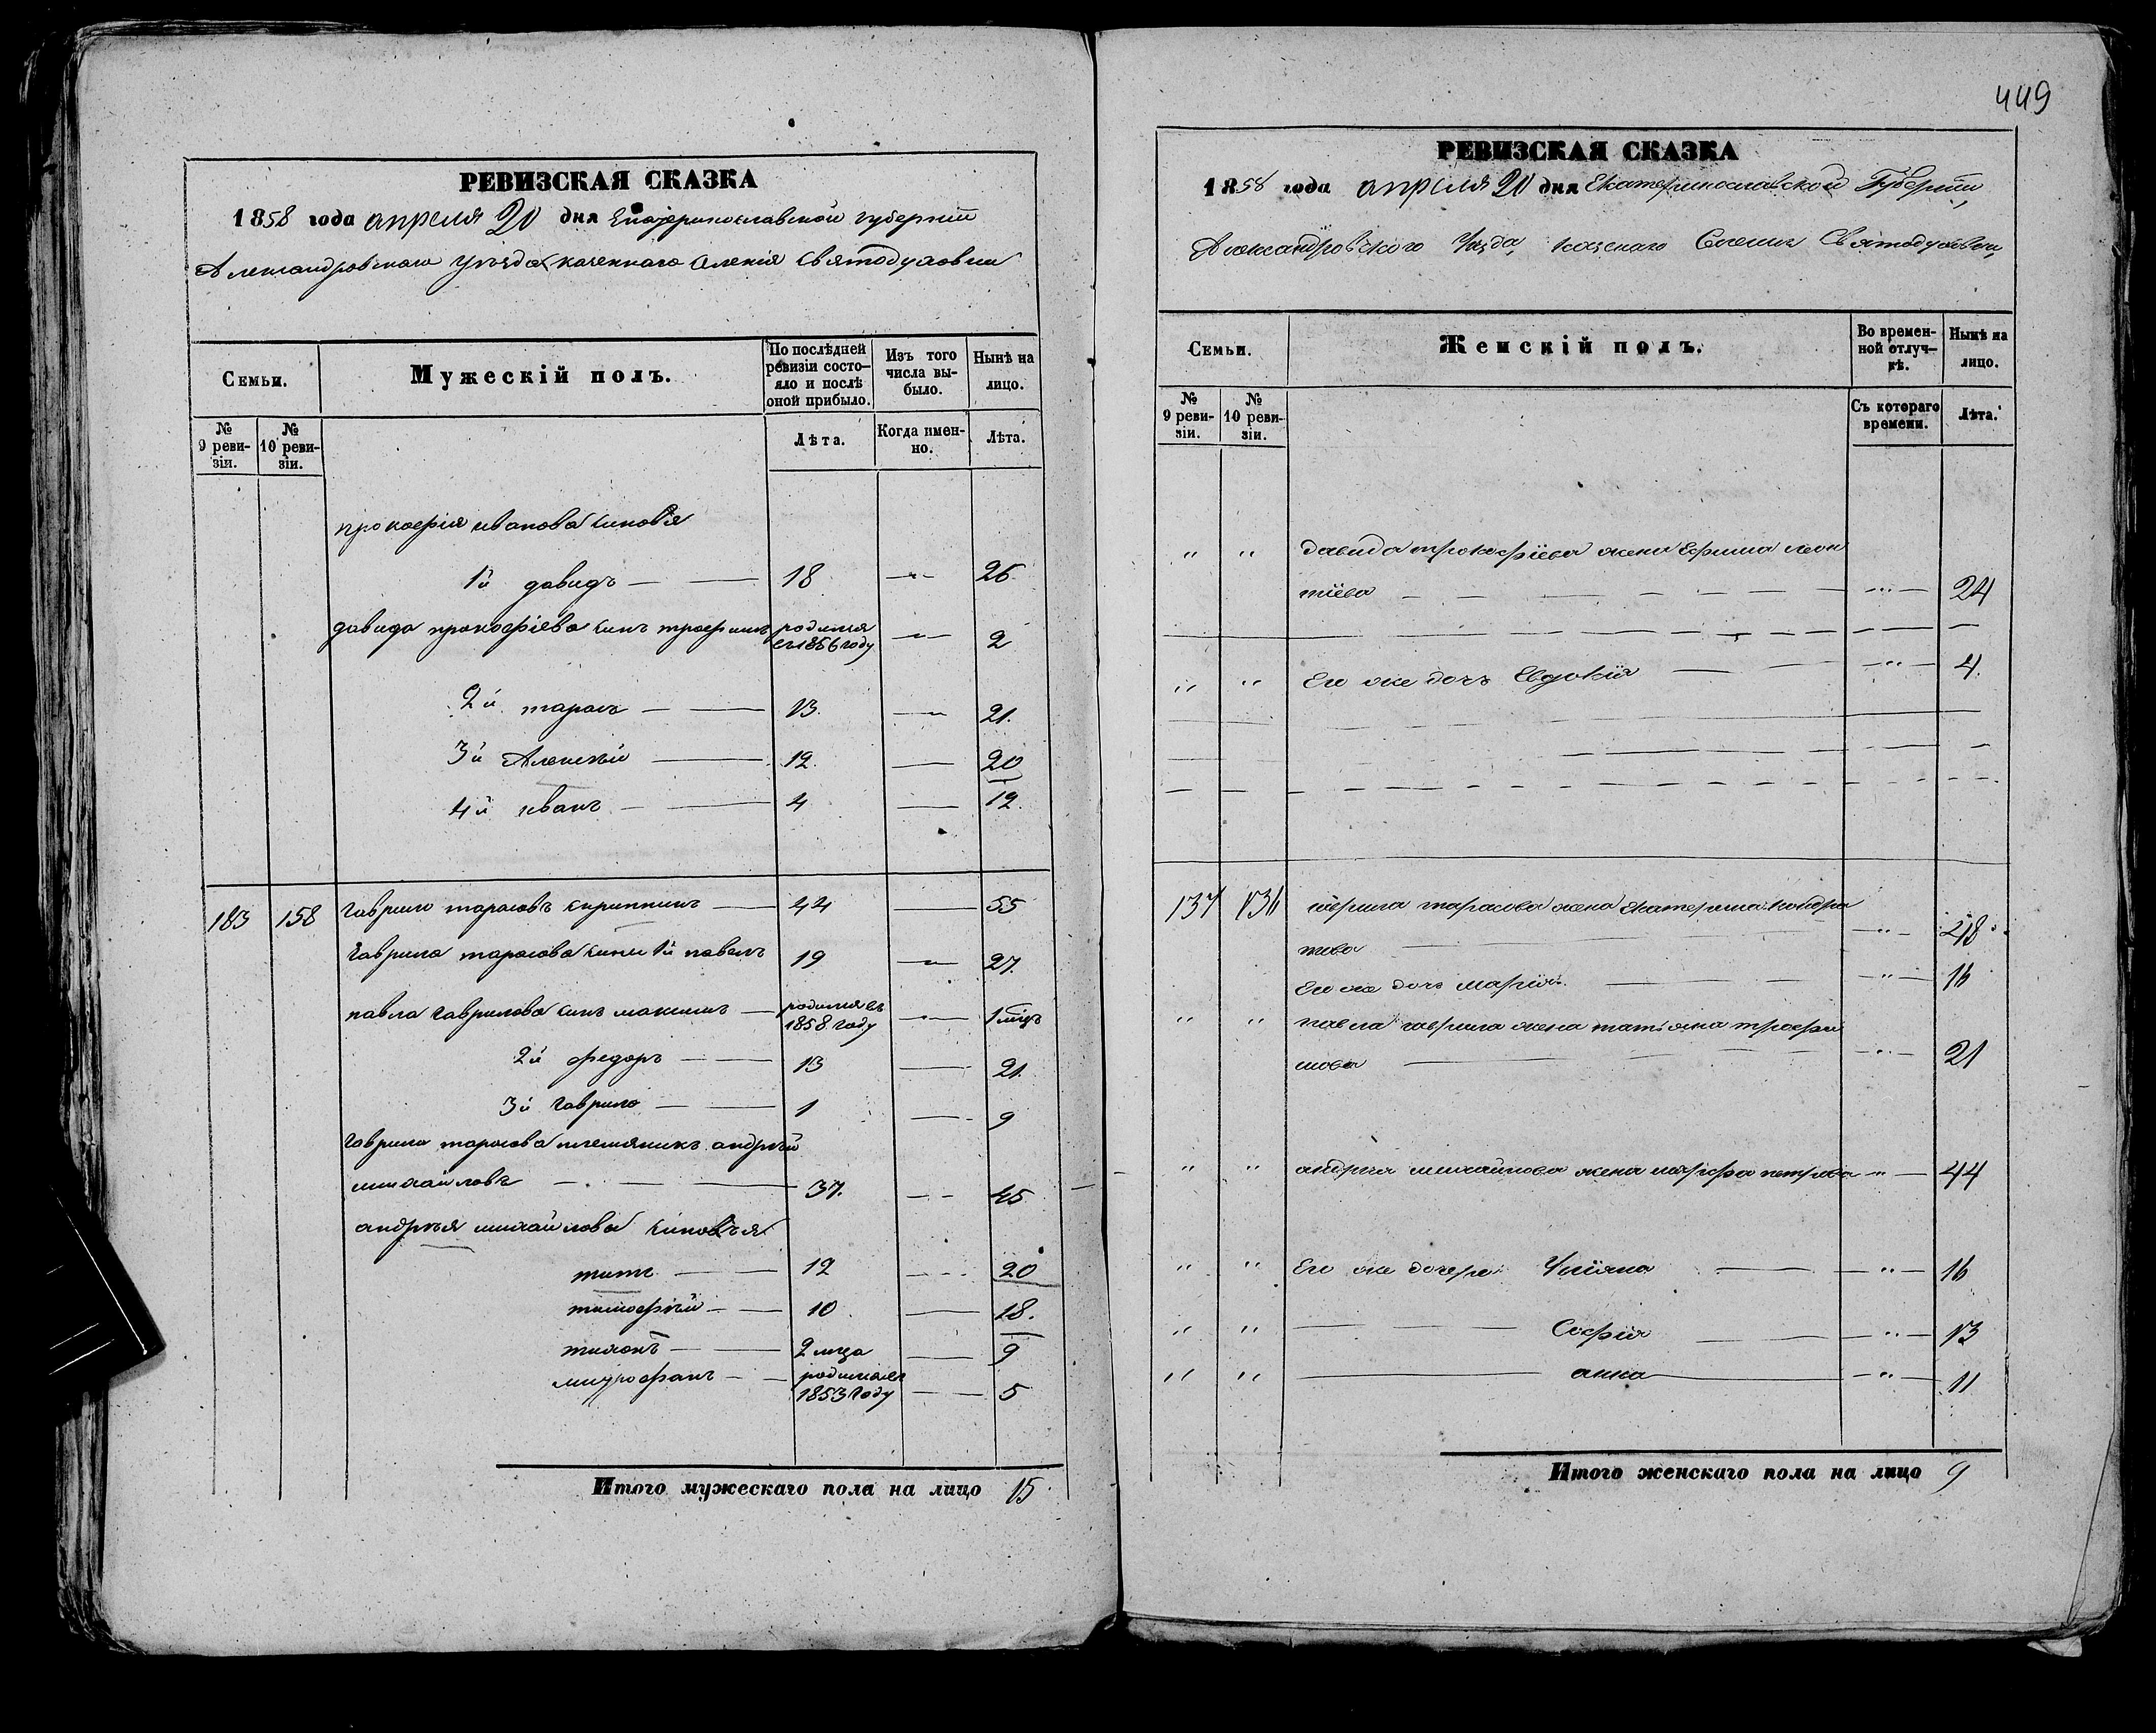 РЕВИЗСКАЯ СКАЗКА
1858 года апреля 20 дня Екатеринославской губерніи
Александровского уъзда казенного селенія Святодуховки
Семьи.
Мужескій полъ.
По послѣдней ревизіи состояло и послѣ оной прибыло.
Изъ того числа выбыло.
Нынѣ на лицо.
№ 9 ревизіи.
№ 10 ревизіи.
Лѣта.
Когда именно.
Лѣта.
прокофія иванова синовя
1й давидъ — — 18 — 26
давида прокофіева синъ трофимъ родился въ 1856 году — 2
2й тарасъ — — 13. — 21.
3й Алексѣй — 12. — 20
4й иванъ — — 4 — 12.
183 158 гаврило тарасовъ скрипникъ — 44 — 55
гаврила тарасова сини 1й павелъ 19 — 27.
павла гаврилова синъ максимъ — родился въ 1858 году — 1 мѣць
2й федоръ — — 13 — 21.
3й гаврило — — 1 — 9
гаврила тарасова племяникъ андрѣй
михайловъ — — — 37. — 45
андрѣя михайлова синовъя
титъ — 12 — 20
тимофѣй — — 10. — 18.
тихонъ — — 2 мца — 9
митрофанъ — — родился въ 1853 году — 5
Итого мужескаго пола на лицо 15
449
РЕВИЗСКАЯ СКАЗКА
1858 года апреля 20 дня Екатеринославской Губерніи,
Александровского Уѣзда, казенаго Селенія Святодуховки,
Семьи.
Женскій полъ.
Во временной отлучкѣ.
Нынѣ на лицо.
№ 9 ревизіи.
№ 10 ревизіи.
Съ котораго времени.
Лѣта.
" " давида прокофіева жена Ефимия леон
тіева — — — — — — — " — 24
" " Его же дочъ Евдокія — — — " — 4.
137 136 гаврила тарасова жена екатерина кондра
това — — — " — 48
Его же дочъ марія — — — " — 16
" " павла гаврила жена татіяна трофи
мова — — " — 21
" " андрея михайлова жена марфа петрова — " — 44
" " Его же дочери Уліяна — — " — 16
" " — — Софія — — " — 13
" " — анна — — " — 11
Итого женскаго пола на лицо 9